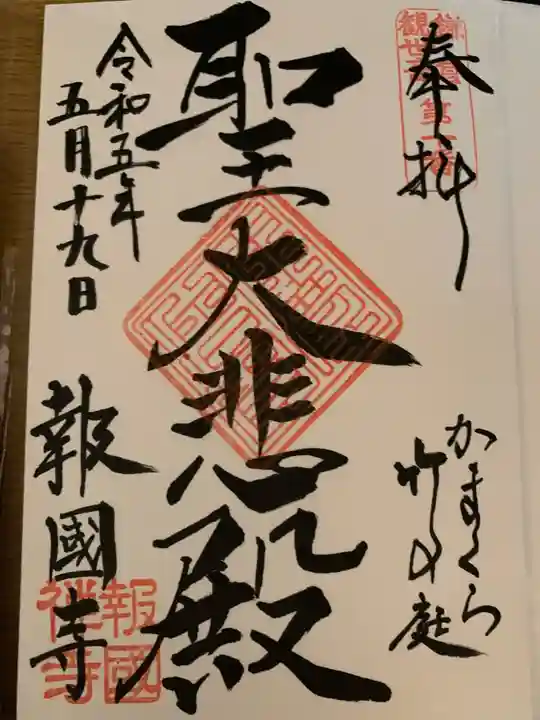 奉拝
鎌倉
観世音第十番
かまくら
竹の庭
聖大悲殿
令和五年
五月十九日
報國寺
報國
禅寺